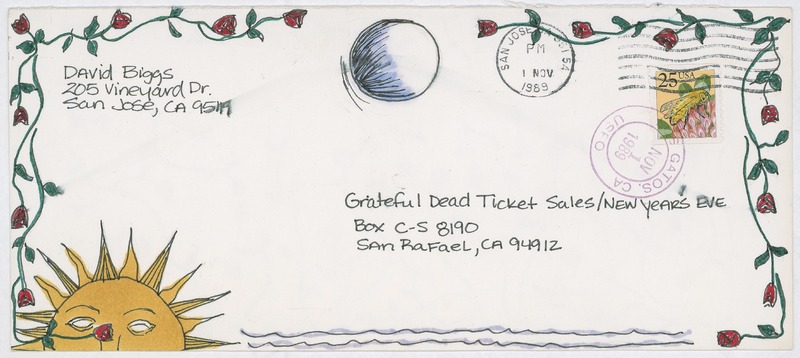 David Biggs
205 Vineyard Dr.
San Jose, CA
SAN JOSE
PM
1 NOV
1989
25 USA
GATOS, CA
NOV
1
1989
USPO
Grateful Dead Ticket Sales/NEW YEAR'S EVE
Box C-S 8190
San Rafael, CA 94912